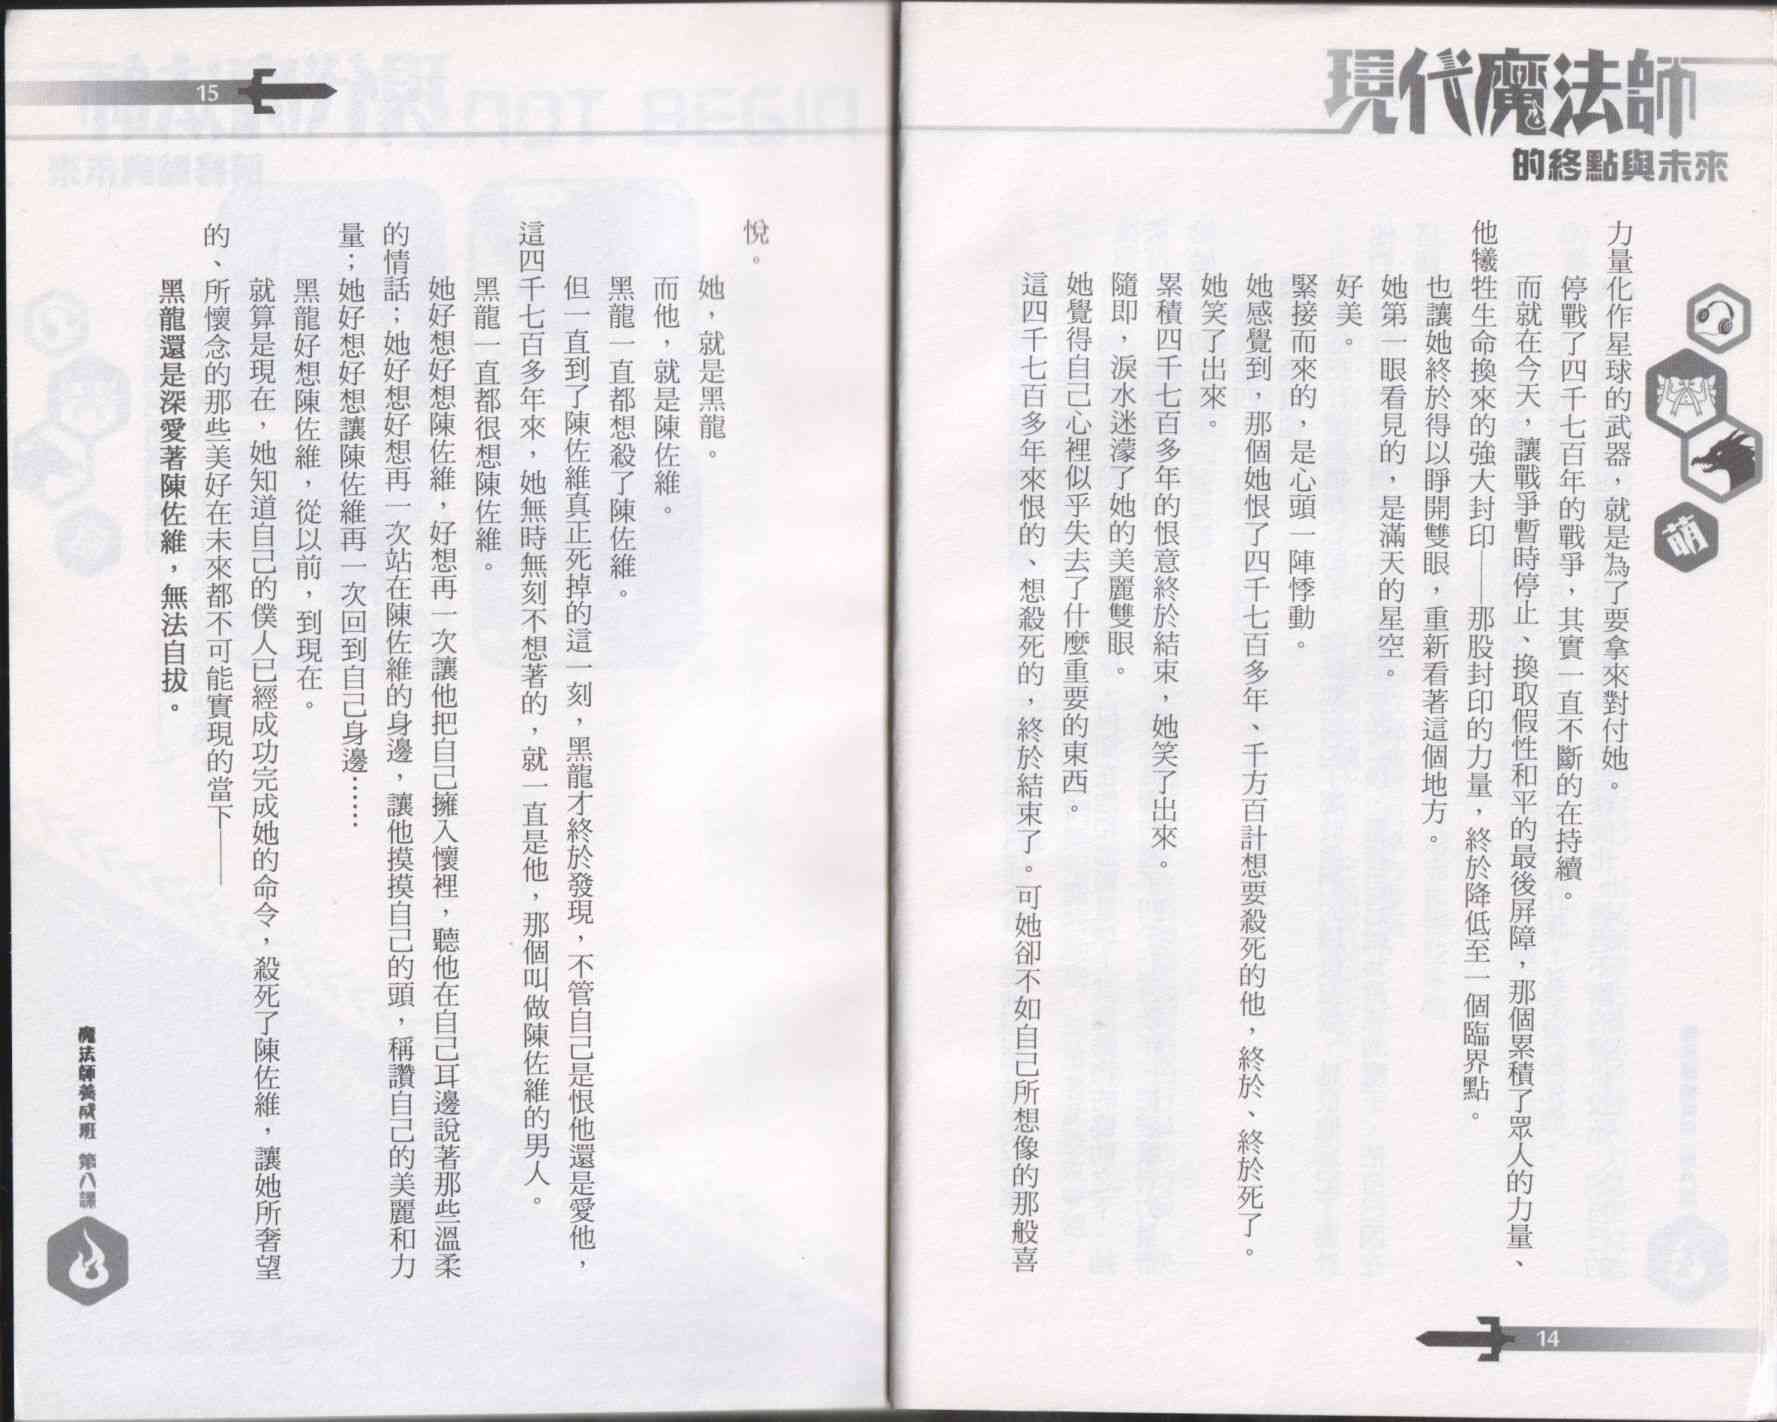 現代魔法師
的終點與未來
力量化作星球的武器，就是為了要拿來對付她。
停戰了四千七百年的戰爭，其實一直不斷的在持續。
而就在今天，讓戰爭暫時停止、換取假性和平的最後屏障，那個累積了眾人的力量、
他犧牲生命換來的強大封印——那股封印的力量，終於降低至一個臨界點。
也讓她終於得以睜開雙眼，重新看著這個地方。
她第一眼看見的，是滿天的星空。
好美。
緊接而來的，是心頭一陣悸動。
她感覺到，那個她恨了四千七百多年、千方百計想要殺死的他，終於、終於死了。
她笑了出來。
累積四千七百多年的恨意終於結束，她笑了出來。
隨即，淚水迷濛了她的美麗雙眼。
她覺得自己心裡似乎失去了什麼重要的東西。
這四千七百多年來恨的、想殺死的，終於結束了。可她卻不如自己所想像的那般喜
萌
14
悅。
她，就是黑龍。
而他，就是陳佐維。
黑龍一直都想殺了陳佐維。
但一直到了陳佐維真正死掉的這一刻，黑龍才終於發現，不管自己是恨他還是愛他，
這四千七百多年來，她無時無刻不想著的，就一直是他，那個叫做陳佐維的男人。
黑龍一直都很想陳佐維。
她好想好想陳佐維，好想再一次讓他把自己擁入懷裡，聽他在自己耳邊說著那些溫柔
的情話；她好想好想再一次站在陳佐維的身邊，讓他摸摸自己的頭，稱讚自己的美麗和力
量；她好想好想讓陳佐維再一次回到自己身邊……
黑龍好想陳佐維，從以前，到現在。
就算是現在，她知道自己的僕人已經成功完成她的命令，殺死了陳佐維，讓她所奢望
的、所懷念的那些美好在未來都不可能實現的當下——
黑龍還是深愛著陳佐維，無法自拔。
15
魔法師養成班 第八課